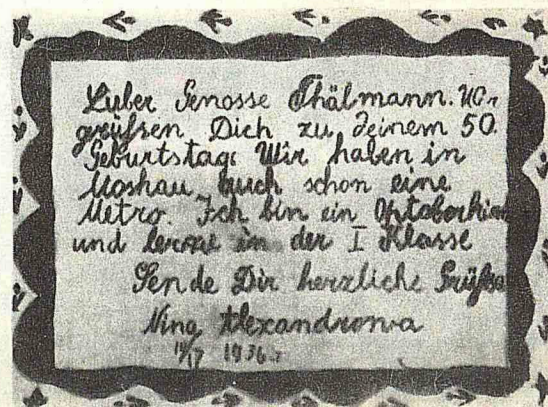 Luber Genosse Thälmann. Wir
grüßen Dich zu Deinem 50.
Geburtstag. Wir haben in
Moskau auch schon eine
Metro. Ich bin ein Oktoberkind
und lerne in der I Klasse
Sende Dir herzliche Grüße
Nina Alexandrowa
1936